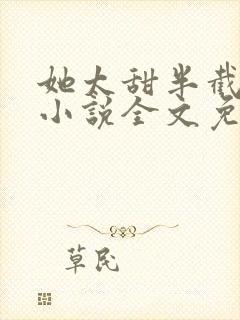 她太甜半截
小説全文免
草民